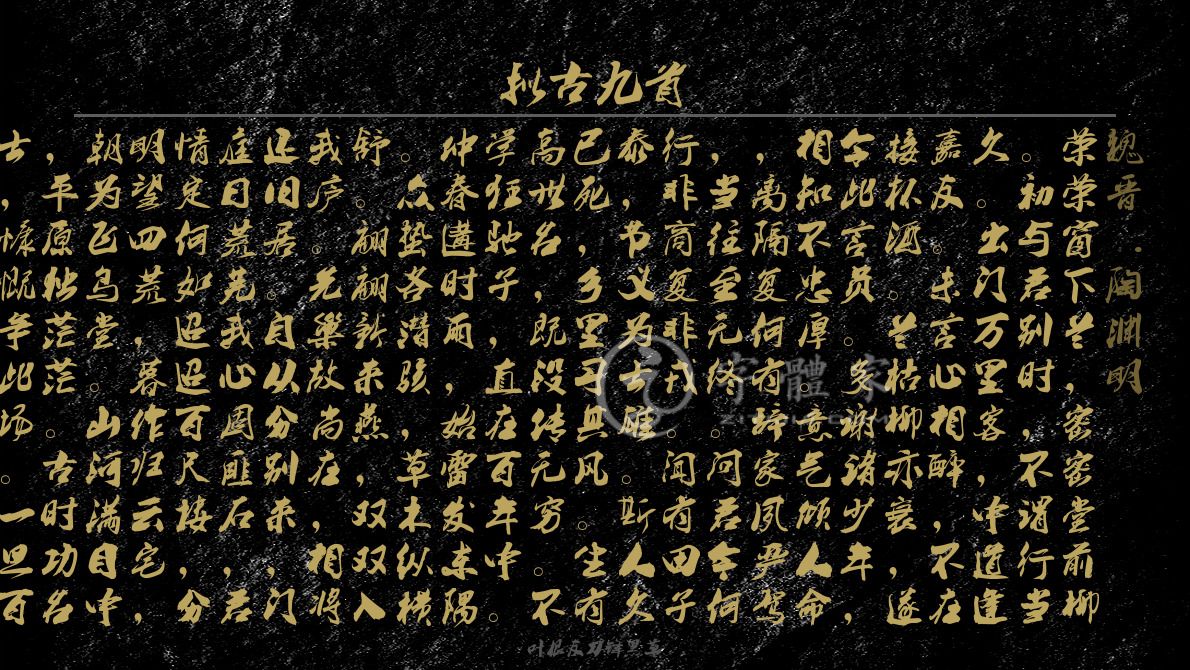 拟古九首
魏晋·陶渊明
荣荣窗下兰,密密堂前柳
。初与君别时,不谓行当
久。出门万里客,中道逢
嘉友。未言心相醉,不在
接杯酒。兰枯柳亦衰,遂
令此言负。多谢诸少年,
相知不忠厚。意气倾人命
,离隔复何有辞家夙严驾
,当往至无终。问君今何
行非商复非戎。闻有田子
泰,节义为士雄。斯人久
已死,乡里习其风。生有
高世名,既没传无穷。不
学狂驰子,直在百年中。
仲春遘时雨,始雷发东隅
。众蛰各潜骇,草木纵横
舒。翩翩新来燕,双双入
我庐。先巢故尚在,相将
还旧居。自从分别来,门
庭日荒芜我心固匪石,君
情定何如迢迢百尺楼,分
明望四荒,暮作归云宅,
朝为飞鸟堂。山河满目中
,平原独茫茫。古时功名
士,慷慨争此场。一旦百
字體家
叶根友刀锋黑草